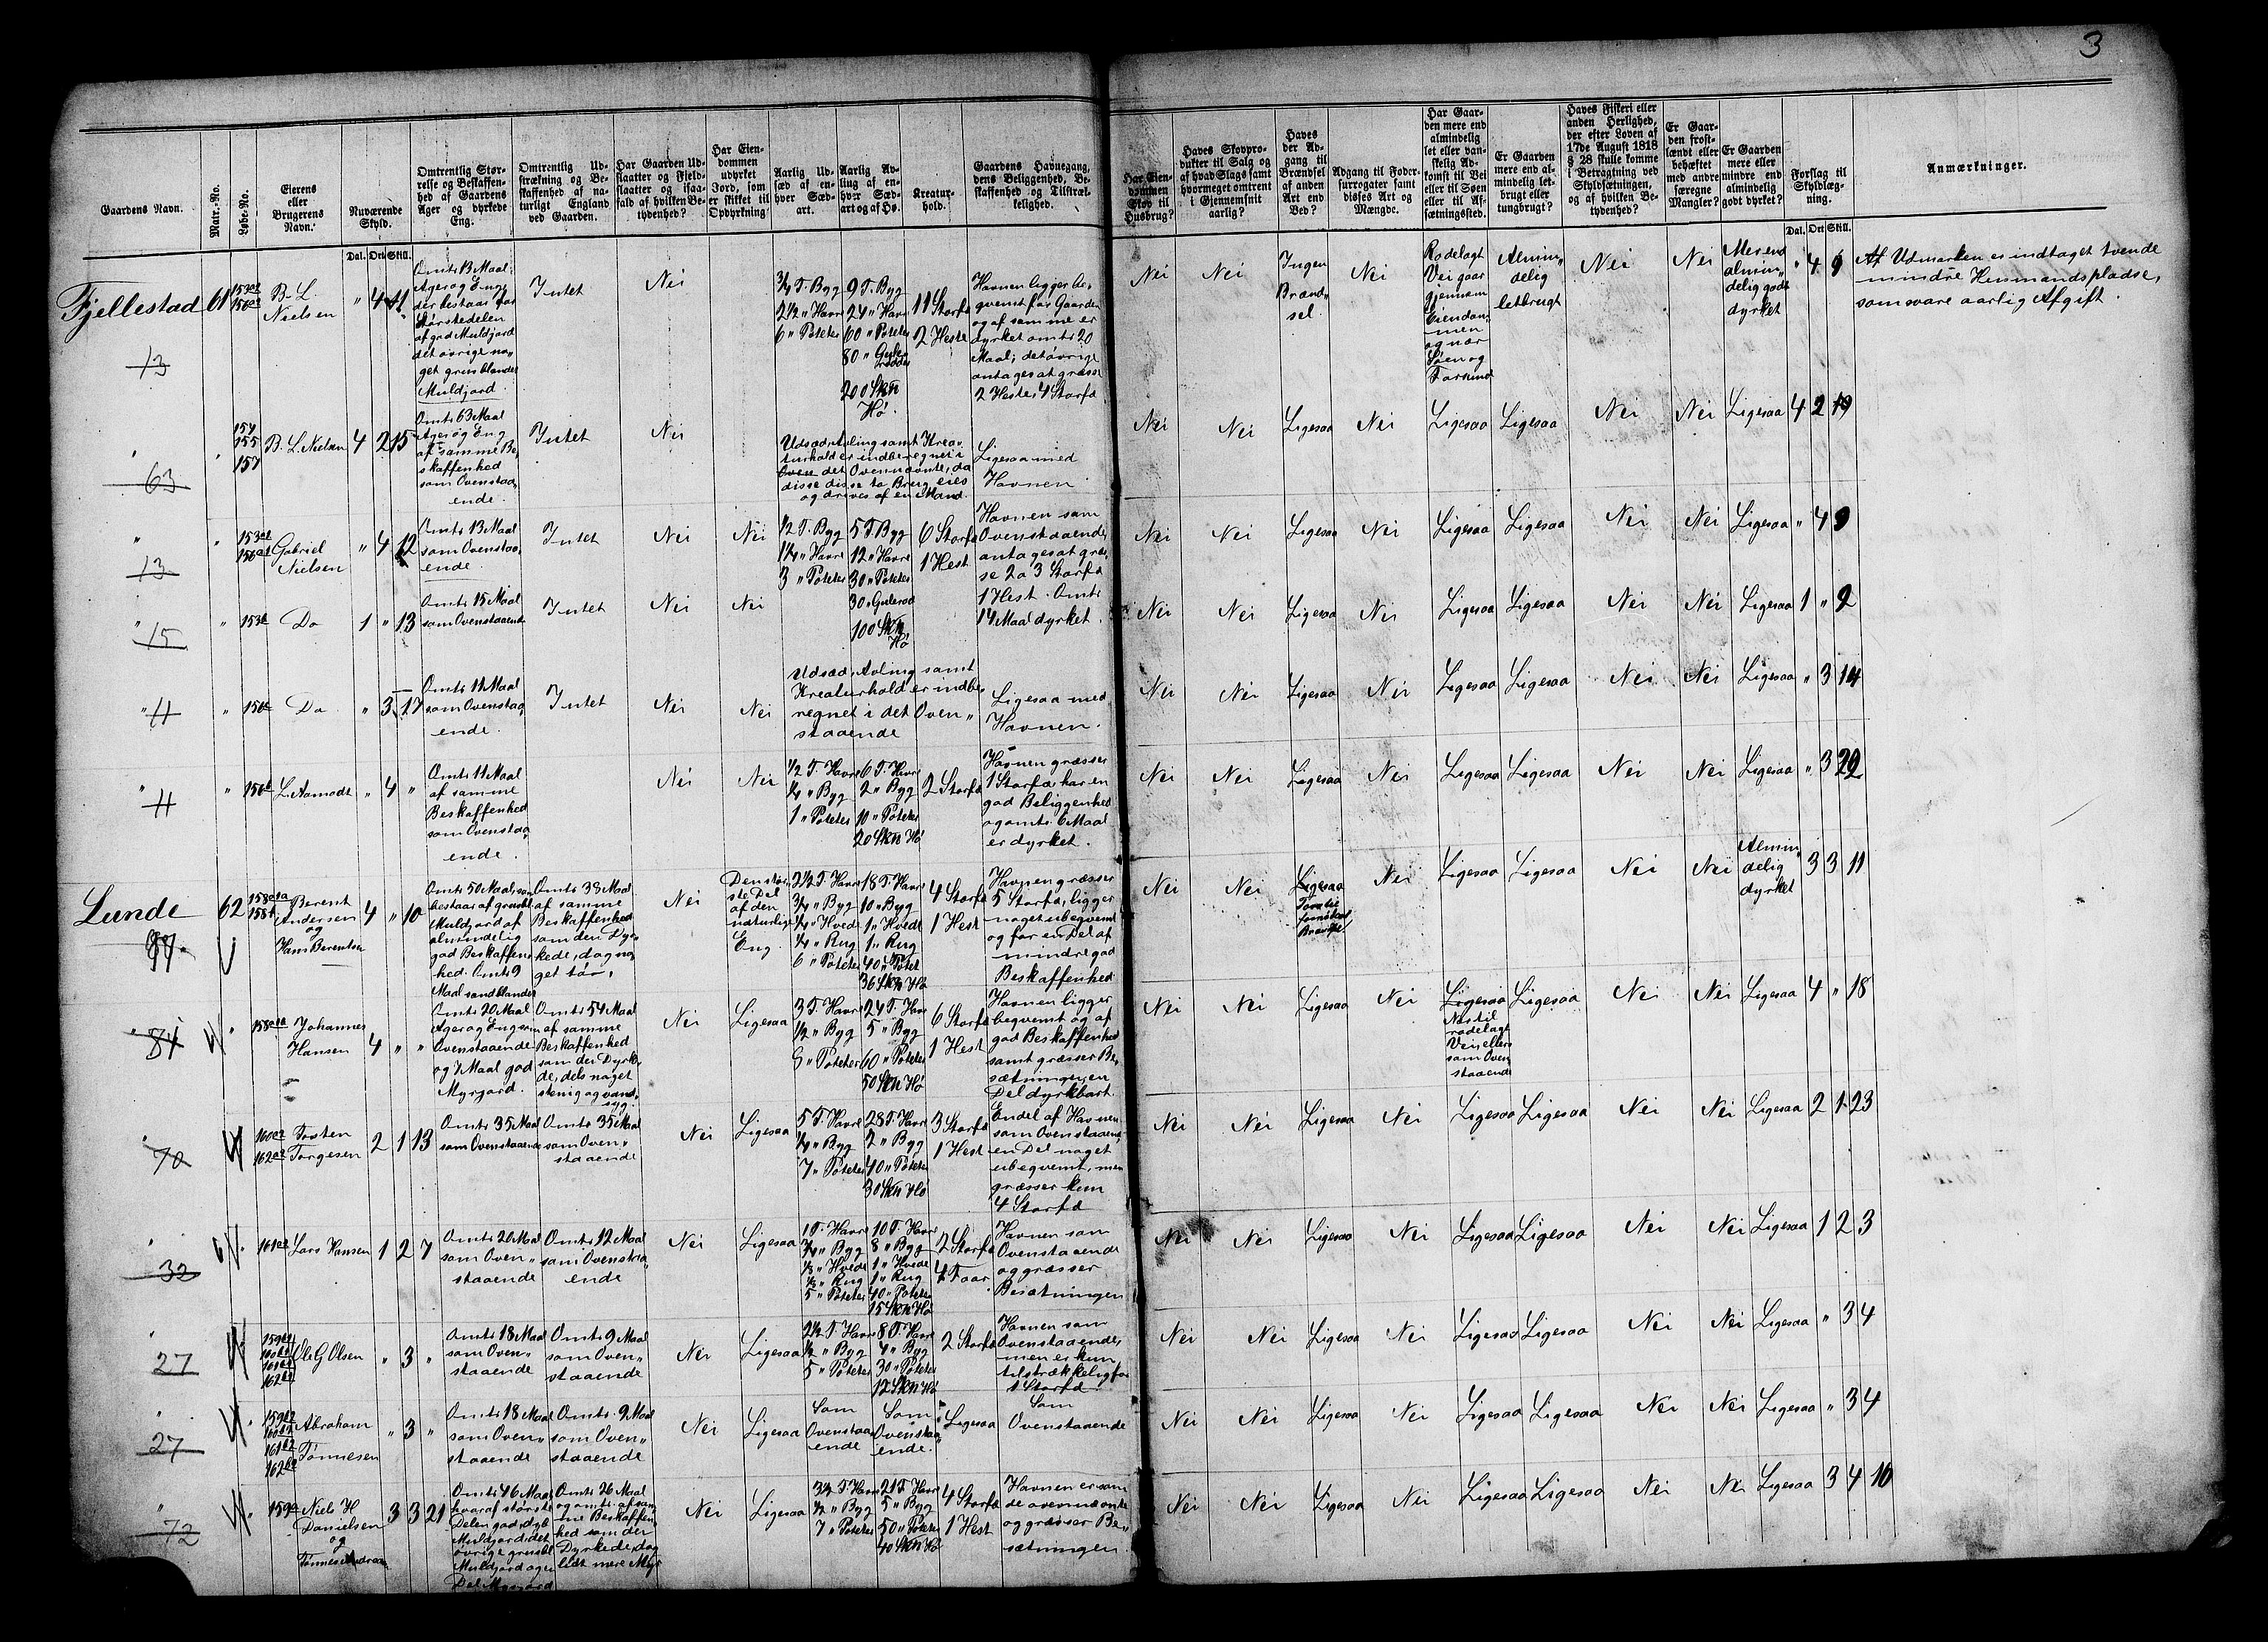 3
Gaardens Navn.
Matr.-No.
Løbe-No.
Eierens
eller
Brugerens
Navn.
Nuværende
Skyld.
Dal. Ort Skill.
Omtrentlig Stør-
relse og Beskaffen-
hed af Gaardens
Ager og dyrkede
Eng.
Omtrentlig Ud-
strækning og Be-
skaffenhed af na-
turligt England
ved Gaarden.
Har Gaarden Ud-
slaatter og Fjeld-
slaatter og isaa-
fald af hvilken Be-
tydenhed?
Har Eien-
dommen
udyrket
Jord, som
er skikket til
Opdyrkning?
Aarlig Ud-
sæd af en-
hver Sæd-
art.
Aarlig Av-
ling af en-
hver Sæd-
art og af Hø.
Kreatur-
hold.
Gaardens Havnegang,
dens Beliggenhed, Be-
skaffenhed og Tilstræk-
kelighed.
Har Eien-
dommen
Skov til
Husbrug?
Haves Skovpro-
dukter til Salg og
af hvad Slags samt
hvormeget omtrent
i Gjennemsnit
aarlig?
Haves
der Ad-
gang til
Brændsel
af anden
Art end
Ved?
Adgang til Foder-
surrogater samt
disses Art og
Mængde.
Har Gaar-
den mere end
almindelig
let eller van-
skelig Ad-
komst til Vei
eller til Søen
eller til Af-
sætningssted.
Er Gaarden
mere end al-
mindelig let-
brugt eller
tungbrugt?
Haves Fiskeri eller
anden Herlighed,
der efter Loven af
17de August 1818
§ 28 skulle komme
i Betragtning ved
Skyldsætningen,
og af hvilken Be-
tydenhed?
Er Gaar-
den frost-
lændt eller
behæftet
med andre
særegne
Mangler?
Er Gaarden
mere eller
mindre end
almindelig
godt dyrket?
Forslag til
Skyldlæg-
ning.
Dal. Ort Skill.
Anmærkninger.
Fjellestad 61
13
B. L.
Nielsen
" 4
Omtr. 13 Maal
Ager og Eng
der bestaar for
Størstedelen
af god Muldjord
det øvrige no„
get grusblandet
Muldjord.
Intet
Nei
3/4 T. Byg
2 1/2 " Havre
6 " Poteter
9 T. Byg
24 " Havre
60 " Poteter
80 " Gule-
rødder
200 Skn
Hø.
11 Storfæ
2 Heste
Havnen ligger be„
qvemt for Gaarden
og af samme er
dyrket omtr. 20
Maal; det øvrige
antages at græsse
2 Heste, 4 Storfæ
Nei
Nei
Ingen
Brænd„
sel.
Nei
Rodelagt
Vei gaar
gjennem
Eiendom„
men
og nær
Søen og
Farsund
Almin„
delig
letbrugt
Nei
Nei
Mer end
almin„
delig godt
dyrket
" 4 9
Af Udmarken er indtaget tvende
mindre Husmandspladse,
som svare aarlig Afgift.
63
154
155
157
B. L. Nielsen
4 2 15
Omtr. 63 Maal
Ager og Eng
af samme Be„
skaffenhed
som Ovenstaa„
ende.
Intet
Nei
Udsæd, Avling samt Krea„
turhold er indberegnet i
det Ovennævnte, da
disse to Brug eies
og drives af en Mand.
Ligesaa med
Havnen.
Nei
Nei
Ligesaa
Nei
Ligesaa
Ligesaa
Nei
Nei
Ligesaa
4 2 19
13
Gabriel
Nielsen
" 4 12
Omtr. 13 Maal
som Ovenstaa„
ende.
Intet
Nei
Nei
1/2 T. Byg
1 1/4 " Havre
3 " Poteter
5 T. Byg
12 " Havre
30 " Poteter
30 " Gulerød
100 Skn
Hø
6 Storfæ
1 Hest
Havnen som
Ovenstaaende,
antages at græs„
se 2 a 3 Storfæ
1 Hest. Omtr.
14 Maal dyrket.
Nei
Nei
Ligesaa
Nei
Ligesaa
Ligesaa
Nei
Nei
Ligesaa
" 4 9
15
Do
1 " 13
Omtr. 15 Maal
som Ovenstaaende
Intet
Nei
Nei
Nei
Nei
Ligesaa
Nei
Ligesaa
Ligesaa
Nei
Nei
Ligesaa
1 " 2
11
Do
" 3 17
Omtr. 11 Maal
som Ovenstaa„
ende.
Intet
Nei
Nei
Udsæd, Avling samt
Kreaturhold er indbe„
regnet i det Oven„
staaende
Ligesaa med
Havnen.
Nei
Nei
Ligesaa
Nei
Ligesaa
Ligesaa
Nei
Nei
Ligesaa
" 3 14
11
L. Aamodt
" 4 "
Omtr. 11 Maal
af samme
Beskaffenhed
som Ovenstaa„
ende.
Nei
Nei
1/2 T. Havre
1/4 " Byg
1 " Poteter
6 T. Havre
2 " Byg
10 " Poteter
20 Skn Hø
2 Storfæ
Havnen græsser
1 Storfæ, har en
god Beliggenhed
og omtr. 6 Maal
er dyrket.
Nei
Nei
Ligesaa
Nei
Ligesaa
Ligesaa
Nei
Nei
Ligesaa
" 3 22
Lunde 62
Berent
Andersen
og
Hans Berentsen
4 " 10
Omtr. 50 Maal, som
bestaar af grusbl.
Muldjord af
almindelig
god Beskaffen„
hed. Omtr. 9
Maal sandblandet
Omtr. 38 Maal
af samme
Beskaffenhed
som den Dyr„
kede, dog no„
get tør.
Nei
Den stør„
ste Del
af den
naturlige
Eng.
2 1/2 T. Havre
3/4 " Byg
1/4 " Hvede
1/4 " Rug
6 " Poteter
18 T. Havre
10 " Byg
1 " Hvede
1 " Rug
40 " Potet
36 Skn Hø
4 Storfæ
1 Hest
Havnen græsser
5 Storfæ, ligger
noget ubeqvemt
og for en Del af
mindre god
Beskaffenhed.
Nei
Nei
Ligesaa
Nei
Ligesaa
Ligesaa
Nei
Nei
Almin„
delig
dyrket
3 3 11
84
Johannes
Hansen
4 " "
Omtr. 20 Maal
Ager og Eng som
Ovenstaaende
og 7 Maal god
Myrjord.
Omtr. 54 Maal
af samme
Beskaffenhed
som den Dyrke„
de, dels noget
stenig og vand„
syg.
Nei
Ligesaa
3 T. Havre
1/2 " Byg
9 " Poteter
24 T. Havre
5 " Byg
60 " Poteter
50 Skn Hø
6 Storfæ
1 Hest
Havnen ligger
beqvemt og af
god Beskaffenhed
samt græsser Be„
sætningen, en
Del dyrkbart.
Nei
Nei
Ligesaa
Nei
Ligesaa
Nær til
rodelagt
Vei, ellers
som Oven
staaende
Ligesaa
Nei
Nei
Ligesaa
4 " 18
70
Torsten
Torgesen
2 1 13
Omtr. 35 Maal
som Ovenstaaende
Omtr. 35 Maal
som Oven„
staaende
Nei
Ligesaa
5 T. Havre
1/4 " Byg
7 " Poteter
28 T. Havre
2 " Byg
40 " Poteter
30 Skn Hø
3 Storfæ
1 Hest
Endel af Havnen
som Ovenstaaende,
en Del noget
ubeqvemt, men
græsser kun
4 Storfæ
Nei
Nei
Ligesaa
Nei
Ligesaa
Ligesaa
Nei
Nei
Ligesaa
2 1 23
32
Lars Hansen
1 2 7
Omtr. 20 Maal
som Oven„
staaende
Omtr. 12 Maal
som Ovenstaa„
ende
Nei
Ligesaa
1 T. Havre
3/4 " Byg
1/8 " Hvede
1/8 " Rug
5 " Poteter
10 T. Havre
8 " Byg
1 " Hvede
1 " Rug
40 " Poteter
15 Skn Hø
2 Storfæ
4 Faar
Havnen som
Ovenstaaende
og græsser
Besætningen
Nei
Nei
Ligesaa
Nei
Ligesaa
Ligesaa
Nei
Nei
Ligesaa
1 2 3
27
Ole G Olsen
" 3 "
Omtr. 18 Maal
som Oven„
staaende
Omtr. 9 Maal
som Oven„
staaende
Nei
Ligesaa
2 1/2 T. Havre
1/2 " Byg
5 " Poteter
8 T. Havre
4 " Byg
30 " Poteter
12 Skn Hø
2 Storfæ
Havnen som
Ovenstaaende,
men er kun
tilstrækkelig for
1 Storfæ
Nei
Nei
Ligesaa
Nei
Ligesaa
Ligesaa
Nei
Nei
Ligesaa
" 3 4
27
Abraham
Tønnesen
" 3 "
Omtr. 18 Maal
som Oven„
staaende
Omtr. 9 Maal
som Oven„
staaende
Nei
Ligesaa
Som
Ovenstaa
ende
Som
Ovenstaa„
ende.
Ligesaa
Som
Ovenstaaende
Nei
Nei
Ligesaa
Nei
Ligesaa
Ligesaa
Nei
Nei
Ligesaa
" 3 4
72
Niels H
Danielsen
og
3 3 21
Omtr. 46 Maal
hvoraf største
Delen god, dyb
Muldjord, det
øvrige grusbl.
Muldjord og en
Del Myrjord
Omtr. 26 Maal
og omtr. af sam„
me Beskaffen„
hed som den
Dyrkede, dog
lidt mere Myr
Nei
Ligesaa
3 1/2 T. Havre
1/2 " Byg
7 " Poteter
21 T. Havre
5 " Byg
50 " Poteter
40 Skn Hø
4 Storfæ
1 Hest
Havnen er som
de ovennævnte
og græsser Be„
sætningen.
Nei
Nei
Ligesaa
Nei
Ligesaa
Ligesaa
Nei
Nei
Ligesaa
3 4 10